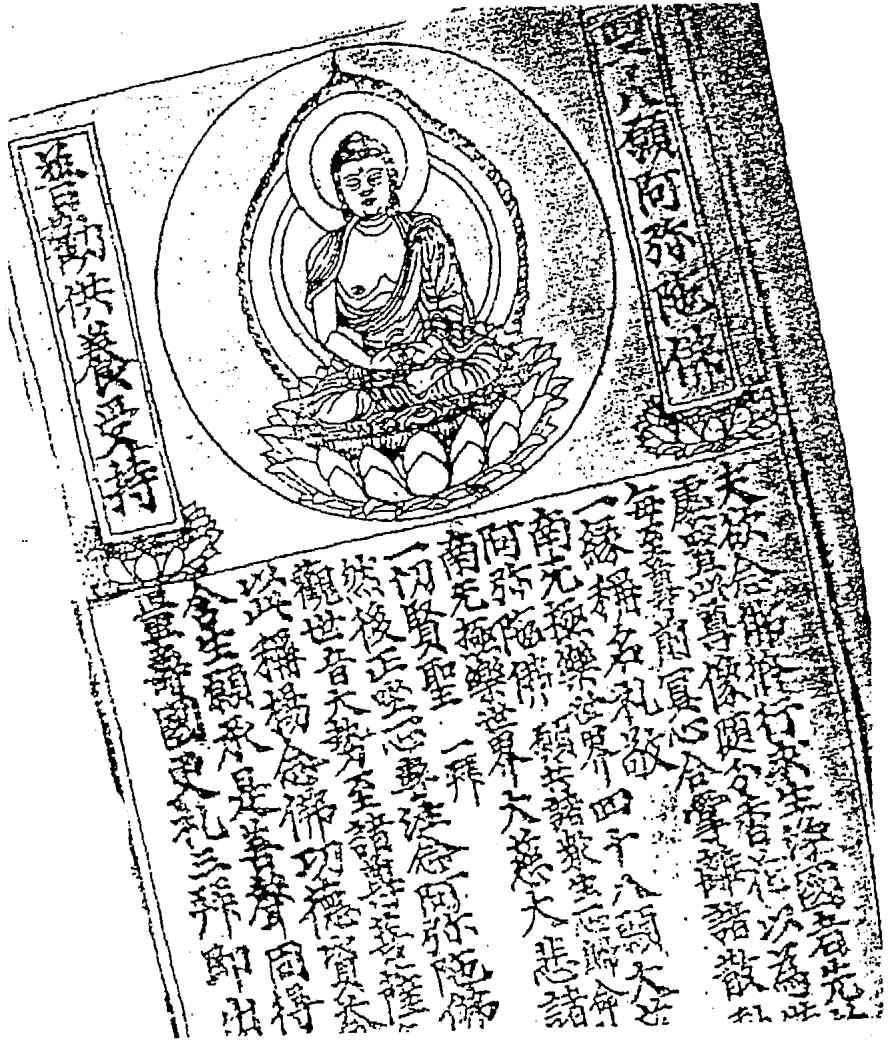 四十八願阿弥陁佛
普勸供養受持
夫欲念佛修行求生淨國者先
處置此尊像随分香花以為
每至尊前冥心合掌離諸散
一緣稱名礼敬
南无極樂世界四十八願大慈
阿弥陁佛 願共諸衆生一心歸命
南无極樂世界大慈大悲諸
一切賢聖 一拜
然後正坐一心專注念阿弥陁佛
觀世音大勢至諸尊菩薩
以此稱揚念佛功德資益
含生願承是善聲同得
諸國更礼三拜即出